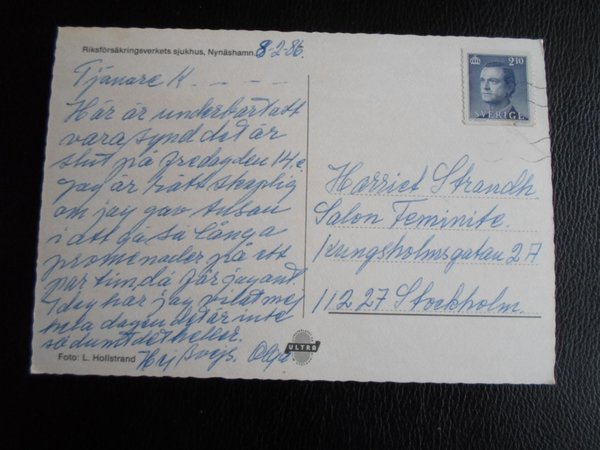 Riksförsäkringsverkets sjukhus, Nynäshamn. 8-2-86.
Tjänare H - - - -
Här är underbart att
vara, synd det är
slut på fredag den 14.e
Jag är rätt skaplig
om jag gav
i att gå så långa
promenader på ett
par tim, då får jag ont
I dag har jag vilat mej
hela dagen det är inte
så dumt det heller.
Hej
Foto: L. Hollstrand
ULTRA
2.10
SVERIGE
Harriet Strandh.
Salon Feminite.
Kungsholmsgatan 27
112 27 Stockholm.